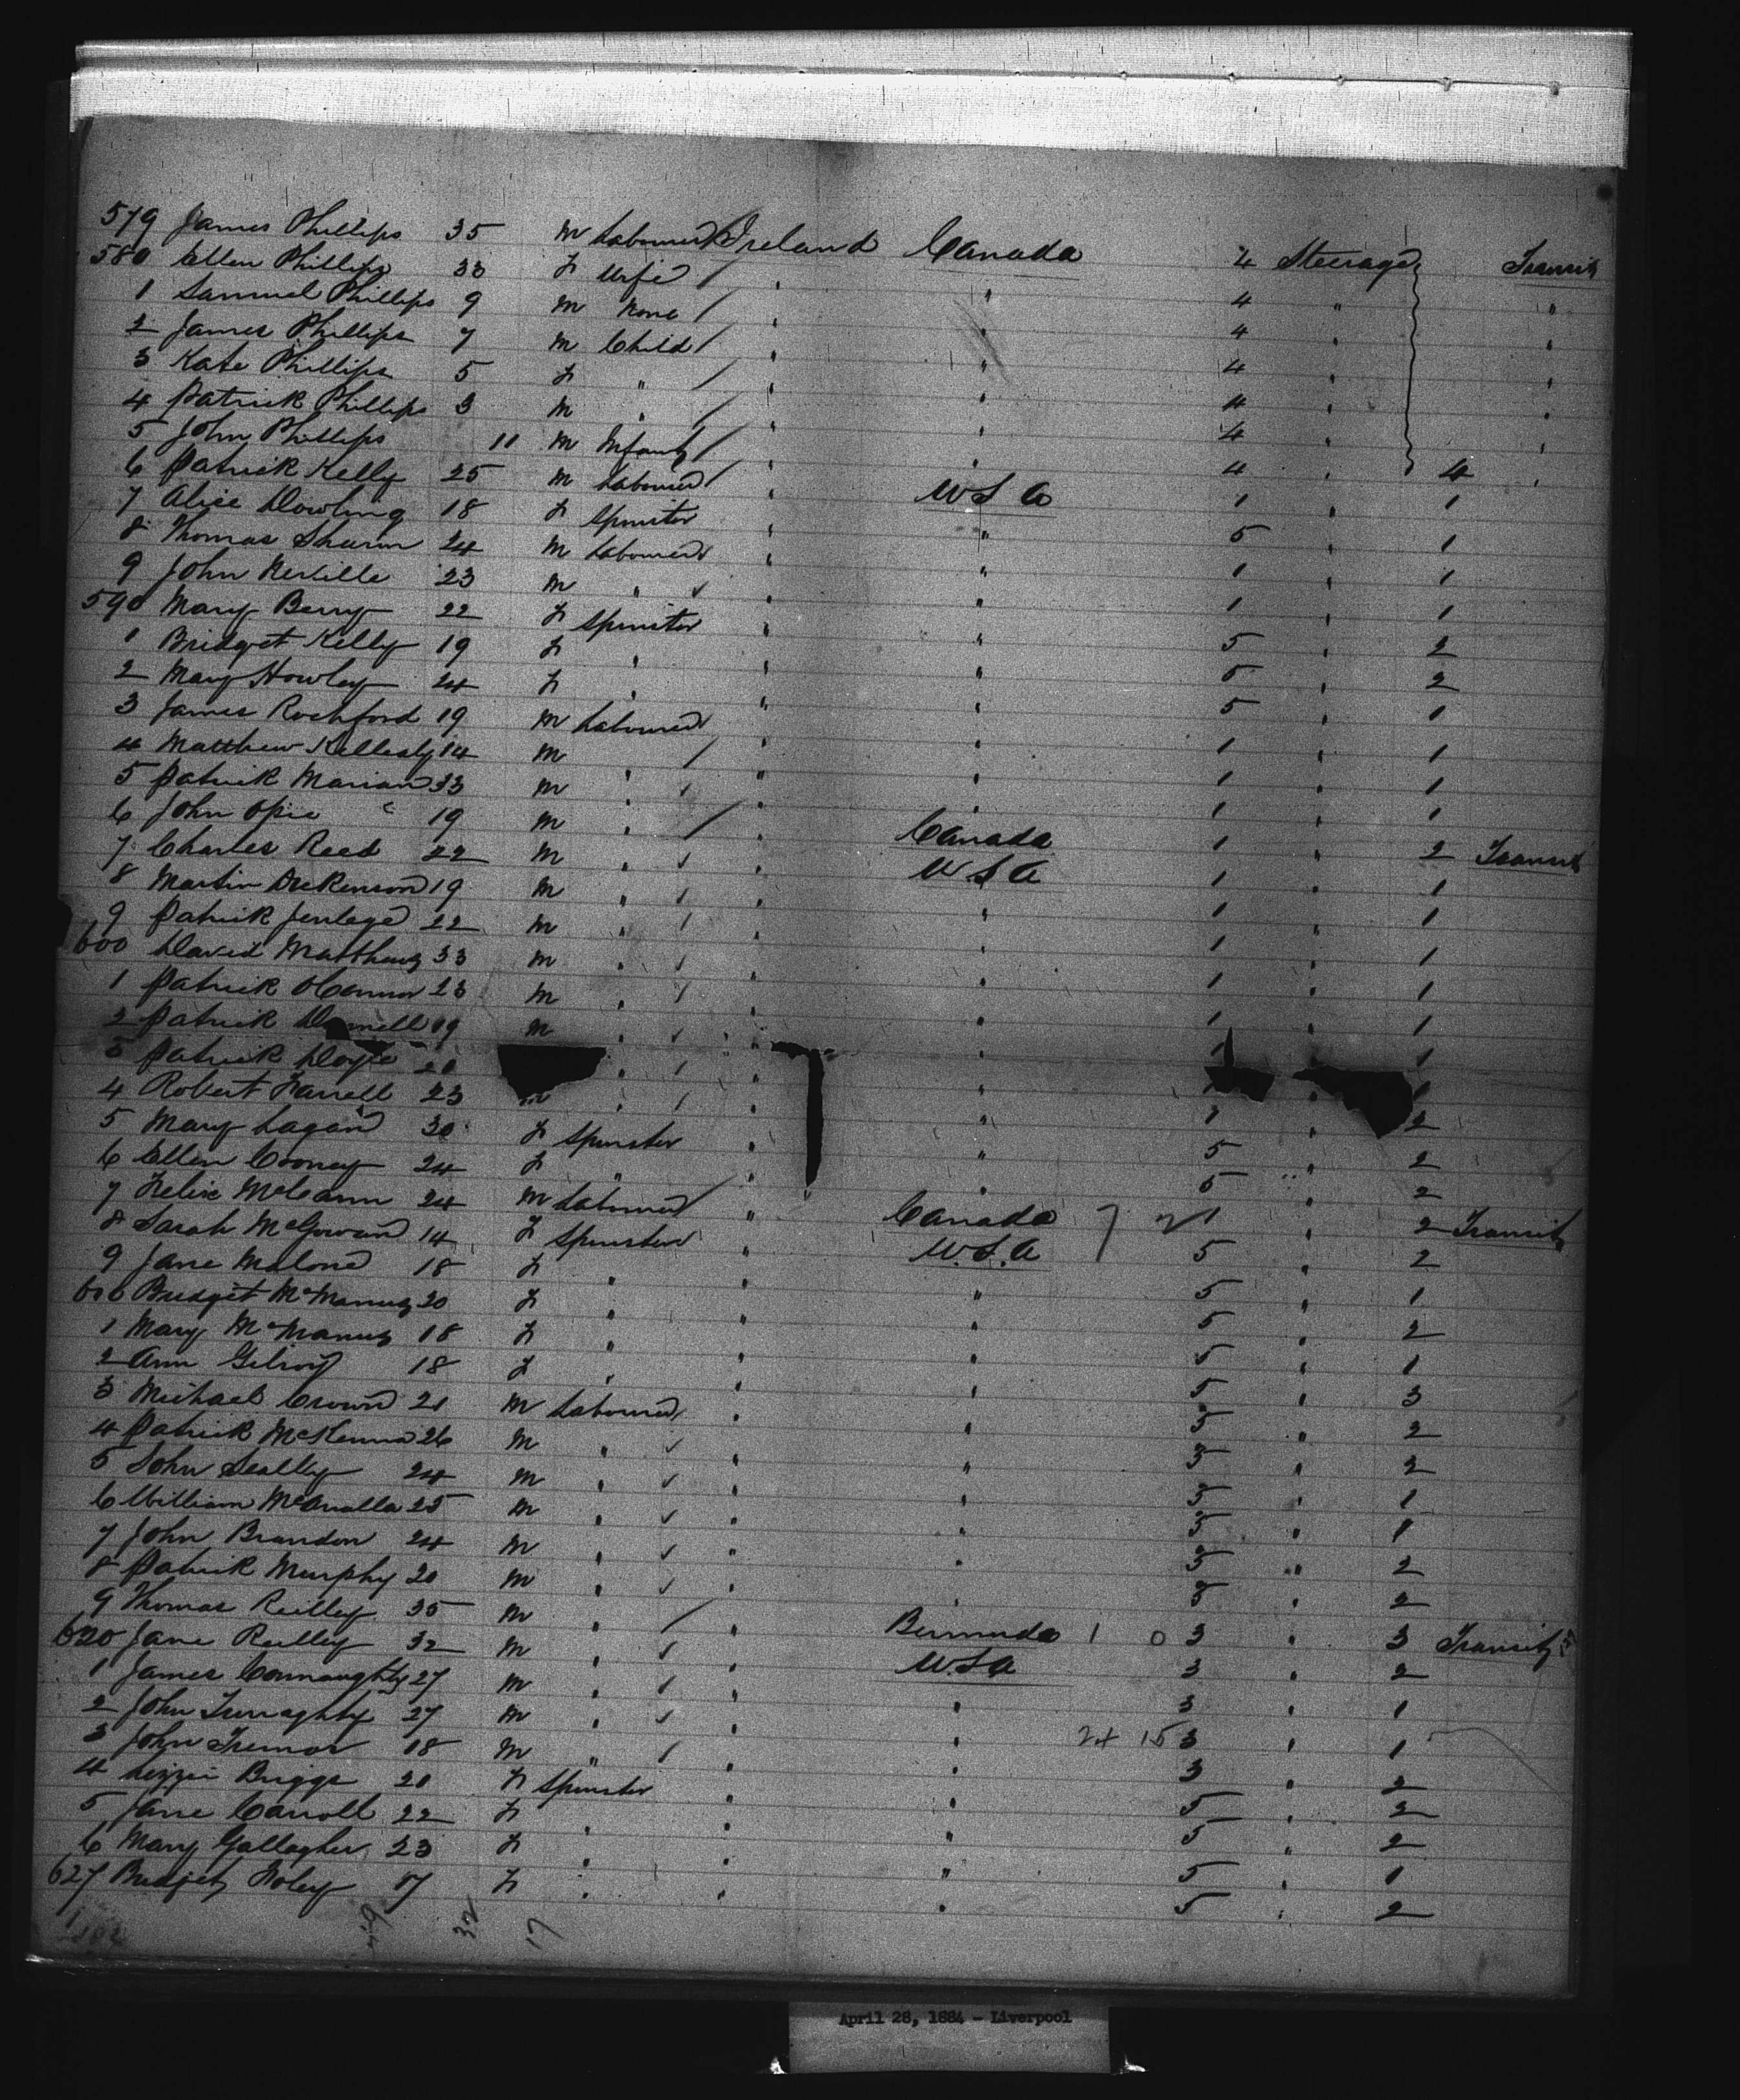 579 James Phillips 35 m Labourer Ireland Canada 4 Steerage Transit
580 Ellen Phillips 33 f Wife " " 4 " "
1 Samuel Phillips 9 m None " " 4 " "
2 James Phillips 7 m Child " " 4 " "
3 Kate Phillips 5 f " " " 4 " "
4 Patrick Phillips 3 m " " " 4 " "
5 John Phillips 11 m Infant " " 4 " 4 "
6 Patrick Kelly 25 m Labourer " U S A 1 " 1
7 Alice Dowling 18 f Spinster " " 5 " 1
8 Thomas 24 m Labourer " " 1 " 1
9 John Neville 23 m " " " 1 " 1
590 Mary Berry 22 f Spinster " " 5 " 2
1 Bridget Kelly 19 f " " " 5 " 2
2 Mary Howley 24 f " " " 5 " 1
3 James Rochford 19 m Labourer " " 1 " 1
4 Matthew 14 m " " " 1 " 1
5 Patrick Marian 33 m " " " 1 " 1
6 John Opie 19 m " " Canada 1 " 2 Transit
7 Charles Reed 22 m " " U.S.A 1 " 1
8 Martin Dickenson 19 m " " " 1 " 1
9 Patrick 22 m " " " 1 " 1
600 David Matthews 33 m " " " 1 " 1
1 Patrick OConnor 23 m " " " 1 " 1
2 Patrick 19 m " " " 1 " 1
3 Patrick Doyle 20 " " " 1 " 1
4 Robert Farrell 23 m " " " 1 " 2
5 Mary Lagan 30 f Spinster " " 5 " 2
6 Ellen Cooney 24 f " " " 5 " 2
7 Felix McCann 24 m Labourer " Canada 7 2 1 " 2 Transit
8 Sarah McGowan 14 f Spinster " U.S.A 5 " 2
9 Jane Malone 18 f " " " 5 " 1
610 Bridget McManus 20 f " " " 5 " 2
1 Mary McManus 18 f " " " 5 " 1
2 Ann Gilroy 18 f " " " 5 " 3
3 Michael Crown 21 m Labourer " " 3 " 2
4 Patrick McKenna 26 m " " " 3 " 2
5 John Scally 24 m " " " 3 " 1
6 William McAnalla 25 m " " " 3 " 1
7 John Brandon 24 m " " " 3 " 2
8 Patrick Murphy 20 m " " " 3 " 2
9 Thomas Reilley 35 m " " Bermuda 1 0 3 " 3 Transit
620 Jane Reilley 32 m " " U.S.A 3 " 2
1 James Connaughty 27 m " " " 3 " 1
2 John 27 m " " " 24 15 3 " 1
3 John 18 m " " " 3 " 2
4 Lizzie Briggs 20 f Spinster " " 5 " 2
5 Jane Carroll 22 f " " " 5 " 2
6 Mary Gallagher 23 f " " " 5 " 1
627 Bridget Foley 17 f " " " 5 " 2
32 17
April 28, 1884 - Liverpool